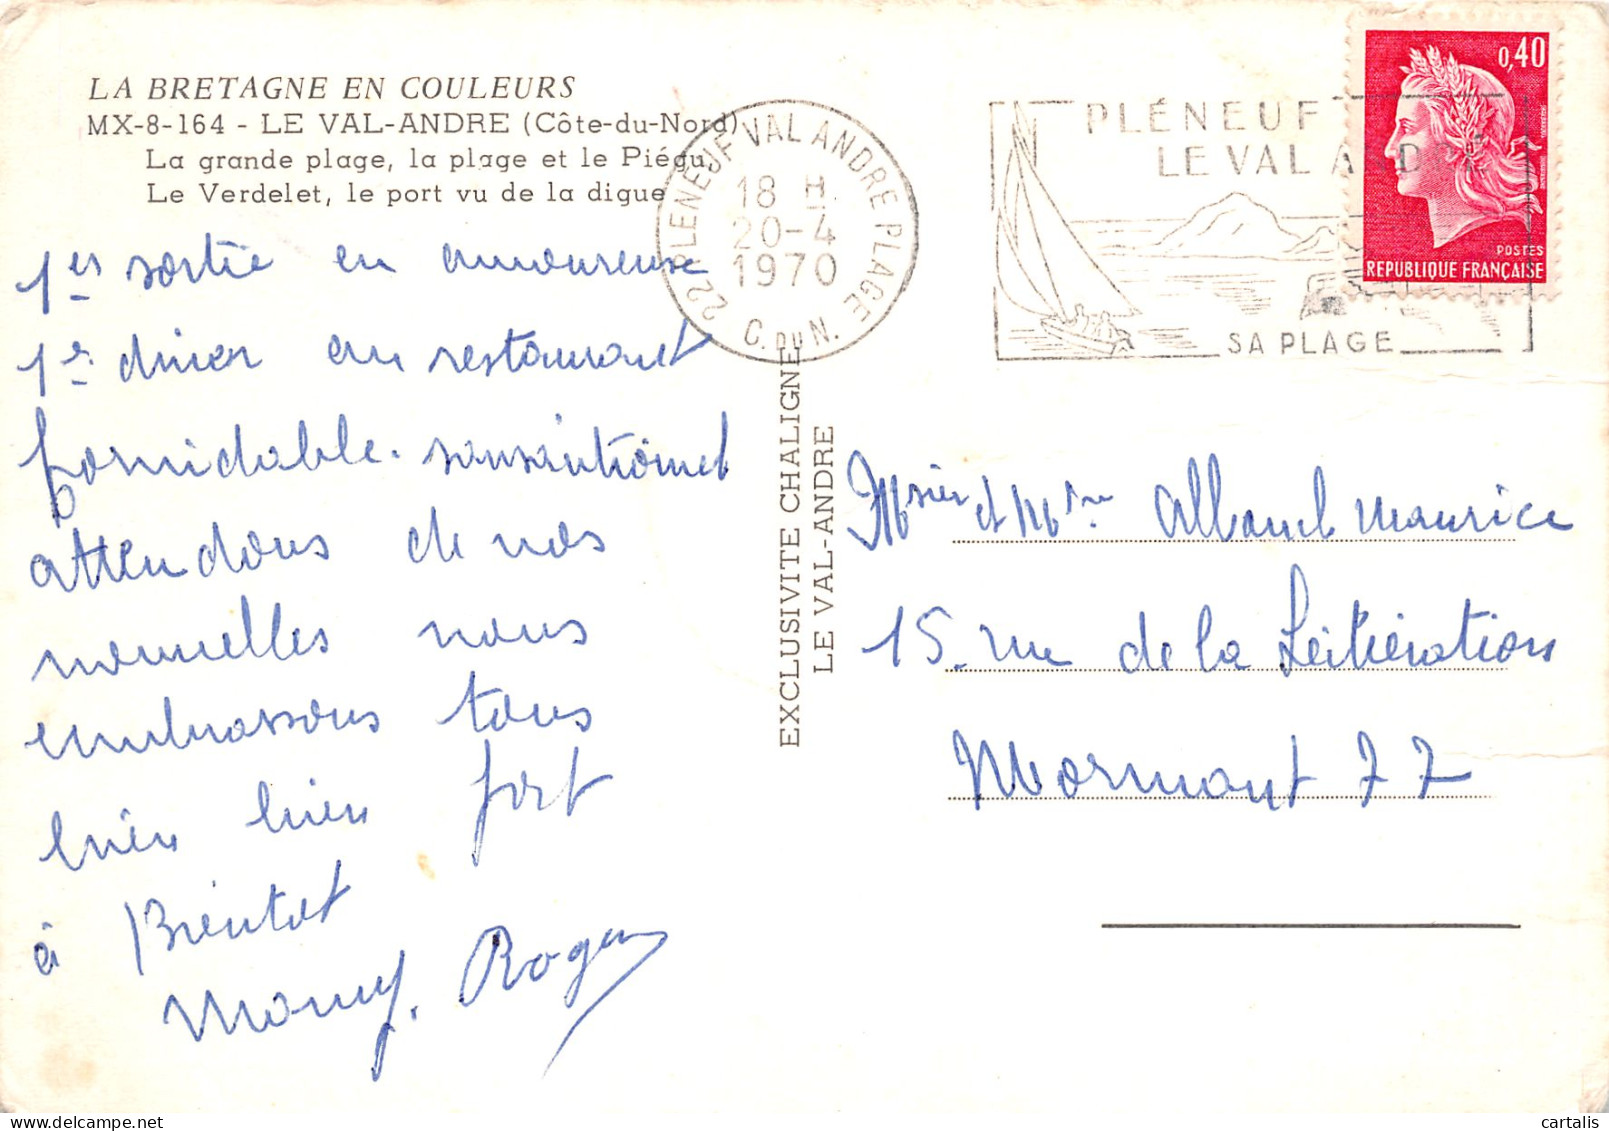 LA BRETAGNE EN COULEURS
MX-8-164 - LE VAL-ANDRE (Côte-du-Nord)
La grande plage, la plage et le Piégu,
Le Verdelet, le port vu de la digue
1er sortie en amoureuse
1er diner au restaurant
formidable. sansantionnel
attendons de vos
nouvelles nous
embrassons tous
bien bien fort
à Bientot
Mamy. Roger
22 PLENEUF VAL ANDRE PLAGE
18 H
20-4
1970
C. DU N.
PLÉNEUF
LE VAL ANDRÉ
SA PLAGE
0,40
POSTES
REPUBLIQUE FRANÇAISE
EXCLUSIVITE CHALIGNE
LE VAL-ANDRE
Msier et Me Maurice
15. rue de la
Mormant 77
cartalis